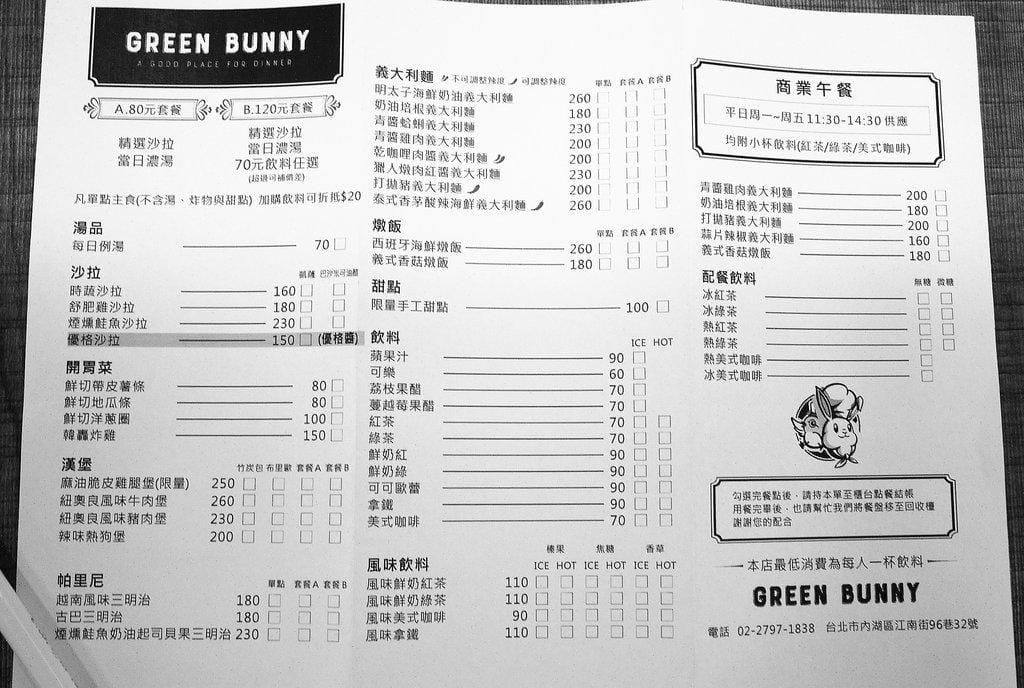 GREEN BUNNY
A GOOD PLACE FOR DINNER
A.80元套餐
精選沙拉
當日濃湯
B.120元套餐
精選沙拉
當日濃湯
70元飲料任選
(超過可補價差)
凡單點主食(不含湯、炸物與甜點) 加購飲料可折抵$20
湯品
每日例湯 70
沙拉 凱薩 巴沙米可油醋
時蔬沙拉 160
舒肥雞沙拉 180
煙燻鮭魚沙拉 230
優格沙拉 150 (優格醬)
開胃菜
鮮切帶皮薯條 80
鮮切地瓜條 80
鮮切洋蔥圈 100
韓轟炸雞 150
漢堡 竹炭包 布里歐 套餐A 套餐B
麻油脆皮雞腿堡(限量) 250
紐奧良風味牛肉堡 260
紐奧良風味豬肉堡 230
辣味熱狗堡 200
帕里尼 單點 套餐A 套餐B
越南風味三明治 180
古巴三明治 180
煙燻鮭魚奶油起司貝果三明治 230
義大利麵 不可調整辣度 可調整辣度 單點 套餐A 套餐B
明太子海鮮奶油義大利麵 260
奶油培根義大利麵 180
青醬蛤蜊義大利麵 230
青醬雞肉義大利麵 200
乾咖哩肉醬義大利麵 200
獵人燉肉紅醬義大利麵 230
打拋豬義大利麵 200
泰式香茅酸辣海鮮義大利麵 260
燉飯 單點 套餐A 套餐B
西班牙海鮮燉飯 260
義式香菇燉飯 180
甜點
限量手工甜點 100
飲料 ICE HOT
蘋果汁 90
可樂 60
荔枝果醋 70
蔓越莓果醋 70
紅茶 70
綠茶 70
鮮奶紅 90
鮮奶綠 90
可可歐蕾 90
拿鐵 90
美式咖啡 70
榛果 焦糖 香草
風味飲料 ICE HOT ICE HOT ICE HOT
風味鮮奶紅茶 110
風味鮮奶綠茶 110
風味美式咖啡 90
風味拿鐵 110
商業午餐
平日周一~周五 11:30-14:30 供應
均附小杯飲料(紅茶/綠茶/美式咖啡)
青醬雞肉義大利麵 200
奶油培根義大利麵 180
打拋豬義大利麵 200
蒜片辣椒義大利麵 160
義式香菇燉飯 180
配餐飲料 無糖 微糖
冰紅茶
冰綠茶
熱紅茶
熱綠茶
熱美式咖啡
冰美式咖啡
勾選完餐點後，請持本單至櫃台點餐結帳
用餐完畢後，也請幫忙我們將餐盤移至回收檯
謝謝您的配合
本店最低消費為每人一杯飲料
GREEN BUNNY
電話 02-2797-1838 台北市內湖區江南街96巷32號